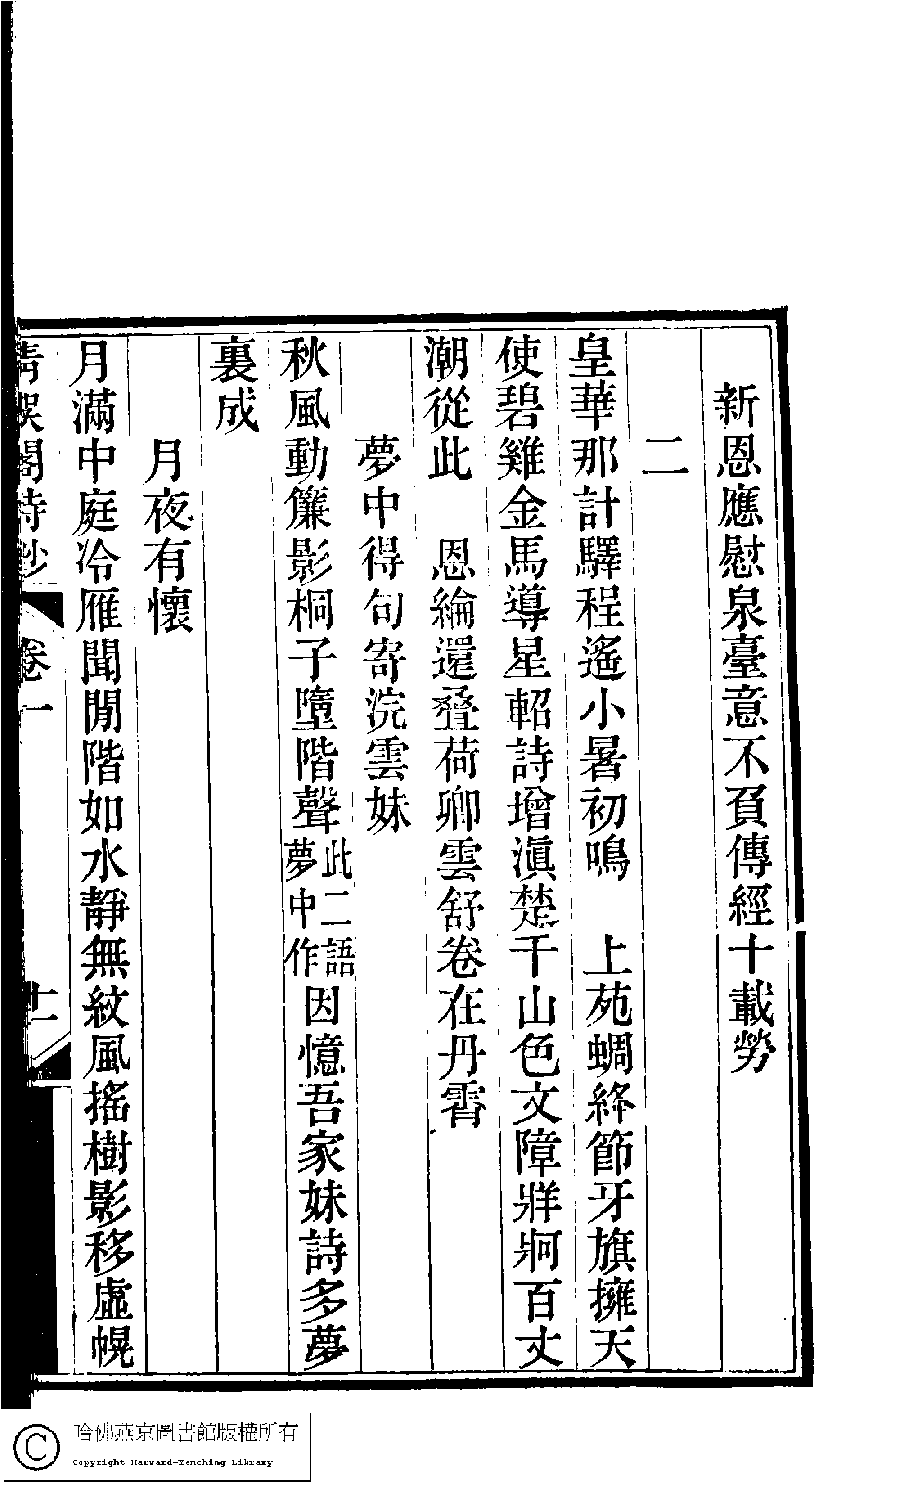 新恩應慰泉臺意不負傳經十載勞
二
皇華那計驛程遙小暑初鳴　上苑蜩絳節牙旗擁天
使碧雞金馬導星軺詩增滇楚千山色文障牂牁百丈
潮從此　恩綸還疊荷卿雲舒卷在丹霄
夢中得句寄浣雲妹
秋風動簾影桐子墮階聲此二語夢中作因憶吾家妹詩多夢
裏成
月夜有懷
月滿中庭冷雁聞閒階如水靜無紋風搖樹影移虛幌
青娛閣詩鈔　卷一　十一
哈佛燕京圖書館版權所有
Copyright Harvard-Yenching Library